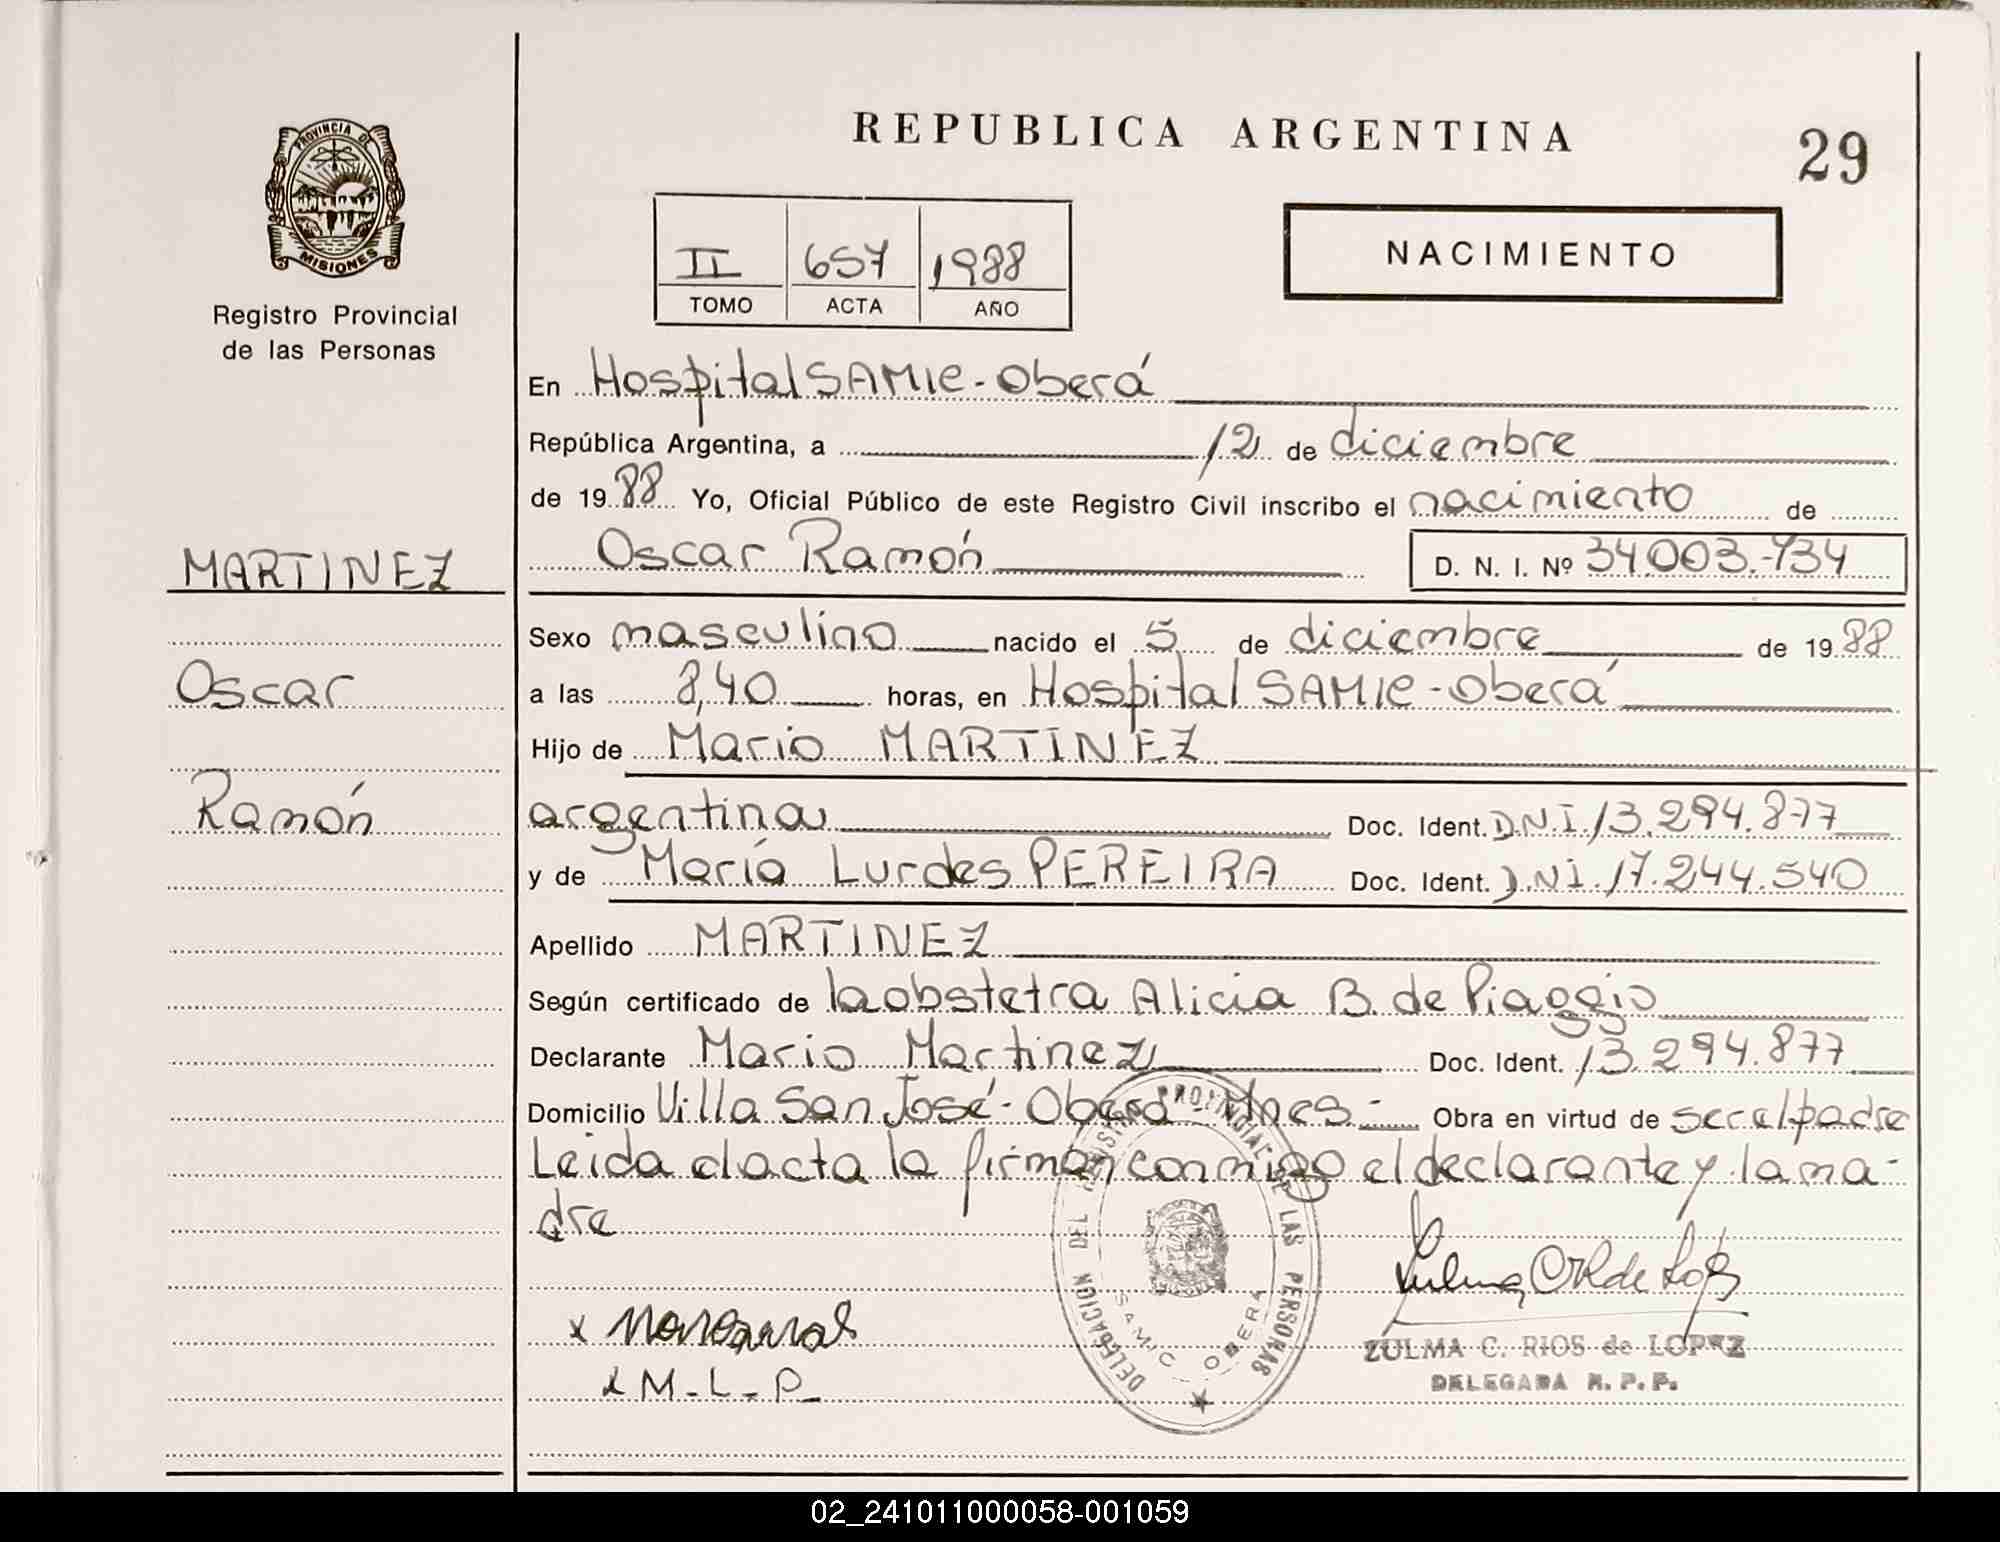 REPUBLICA ARGENTINA
29
PROVINCIA DE
MISIONES
Registro Provincial
de las Personas
II 657 1988
TOMO ACTA AÑO
NACIMIENTO
En Hospital SAMIC - Oberá
República Argentina, a 12 de diciembre
de 1988 Yo, Oficial Público de este Registro Civil inscribo el nacimiento de
Oscar Ramón D. N. I. Nº 34.003.734
MARTINEZ
Oscar
Ramón
Sexo masculino nacido el 5 de diciembre de 1988
a las 8,40 horas, en Hospital SAMIC - Oberá
Hijo de Mario MARTINEZ
argentina Doc. Ident. D.N.I. 13.294.877
y de María Lurdes PEREIRA Doc. Ident. D.N.I. 17.244.540
Apellido MARTINEZ
Según certificado de la obstetra Alicia B. de Piaggio
Declarante Mario Martinez Doc. Ident. 13.294.877
Domicilio Villa San José - Oberá - Mnes - Obra en virtud de ser el padre
Leida el acta la firman conmigo el declarante y la ma-
dre
x
x M-L-P-
DELEGACION DEL REGISTRO PROVINCIAL DE LAS PERSONAS
SAMIC OBERA
ZULMA C. RIOS de LOPEZ
DELEGADA R. P. P.
02_241011000058-001059